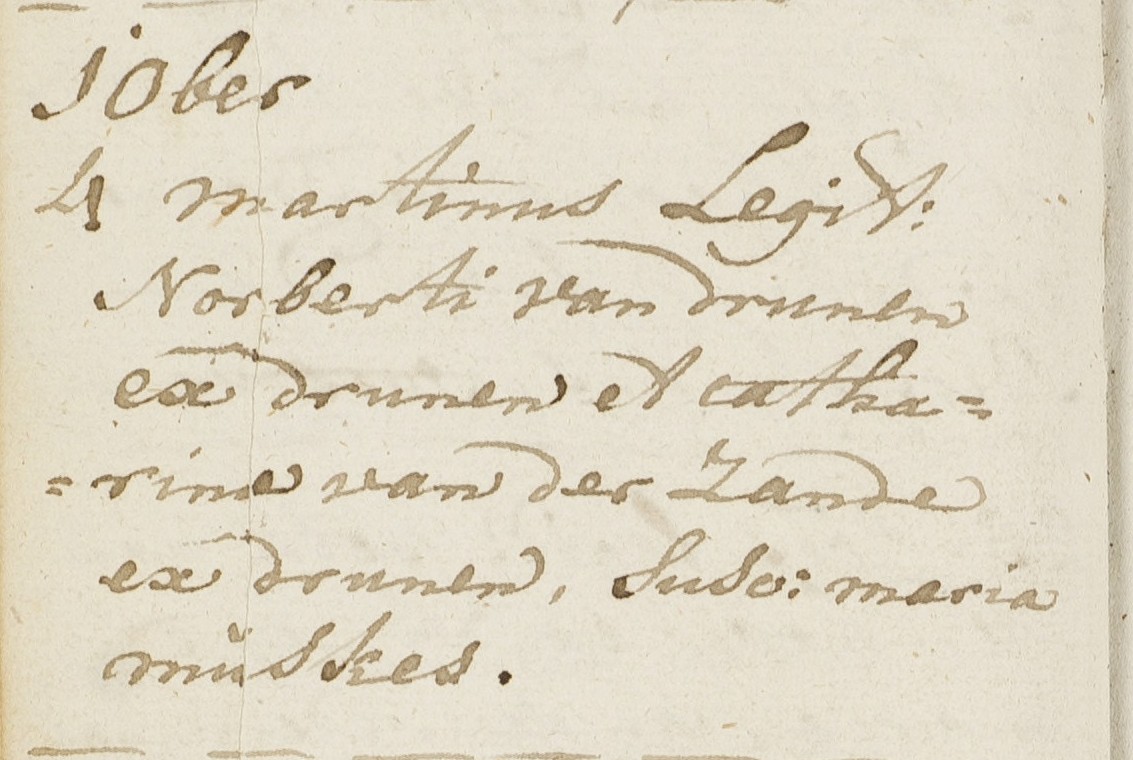 10ber
4 martinus Legit:
Norberti van drunen
ex drunen et catha=
=rine van der Zande
ex drunen, Susc: maria
mŭskes.